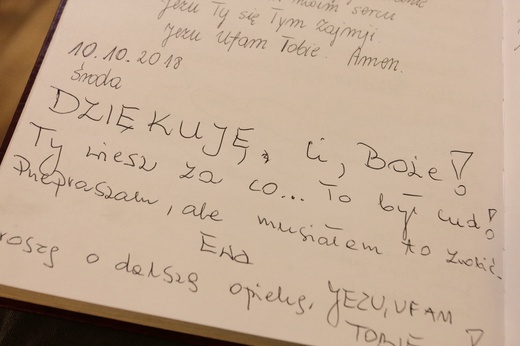 moim sercu
Jezu Ty się Tym zajmij.
Jezu Ufam Tobie. Amen.
10.10.2018
środa
DZIĘKUJĘ, Ci, Boże!
Ty wiesz za co... To był cud!
Przepraszam, ale musiałam to zrobić.
Ewa
roszę o dalszą opiekę, JEZU, UFAM
TOBIE!